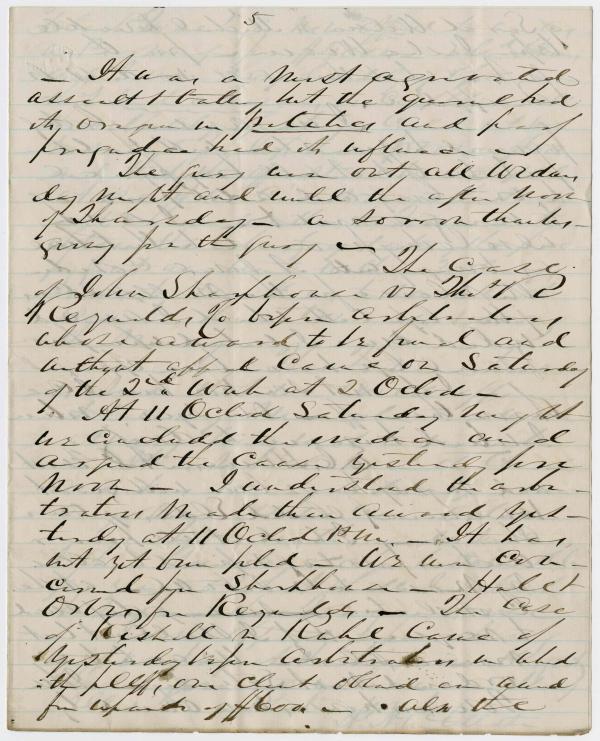 5
— It was a most agrivated
assault & battery but the quarrel had
its origin in politics and party
prejudice had its influence —
The jury were out all Wednes
day night and until the after noon
of Thursday — a sorrow thanks-
giving for the jury — The case
of John Sharkhouse vs Thos
Reynolds & Co before Arbitrators
whose award to be final and
without appeal came on Saturday
of the 2nd Week at 2 Oclock —
At 11 Oclock Saturday night
we concluded the evidence and
argued the cause yesterday fore
noon — I understand the arbi-
trators made their award yes-
terday at 11 Oclock P.M. — It has
not yet been filed — We were con-
cerned for Sharkhouse — Hall &
for Reynolds — The case
of Rishell vs Rahl came off
yesterday before Arbitrators in which
the plff, our client obtained an award
for upwards of — also the